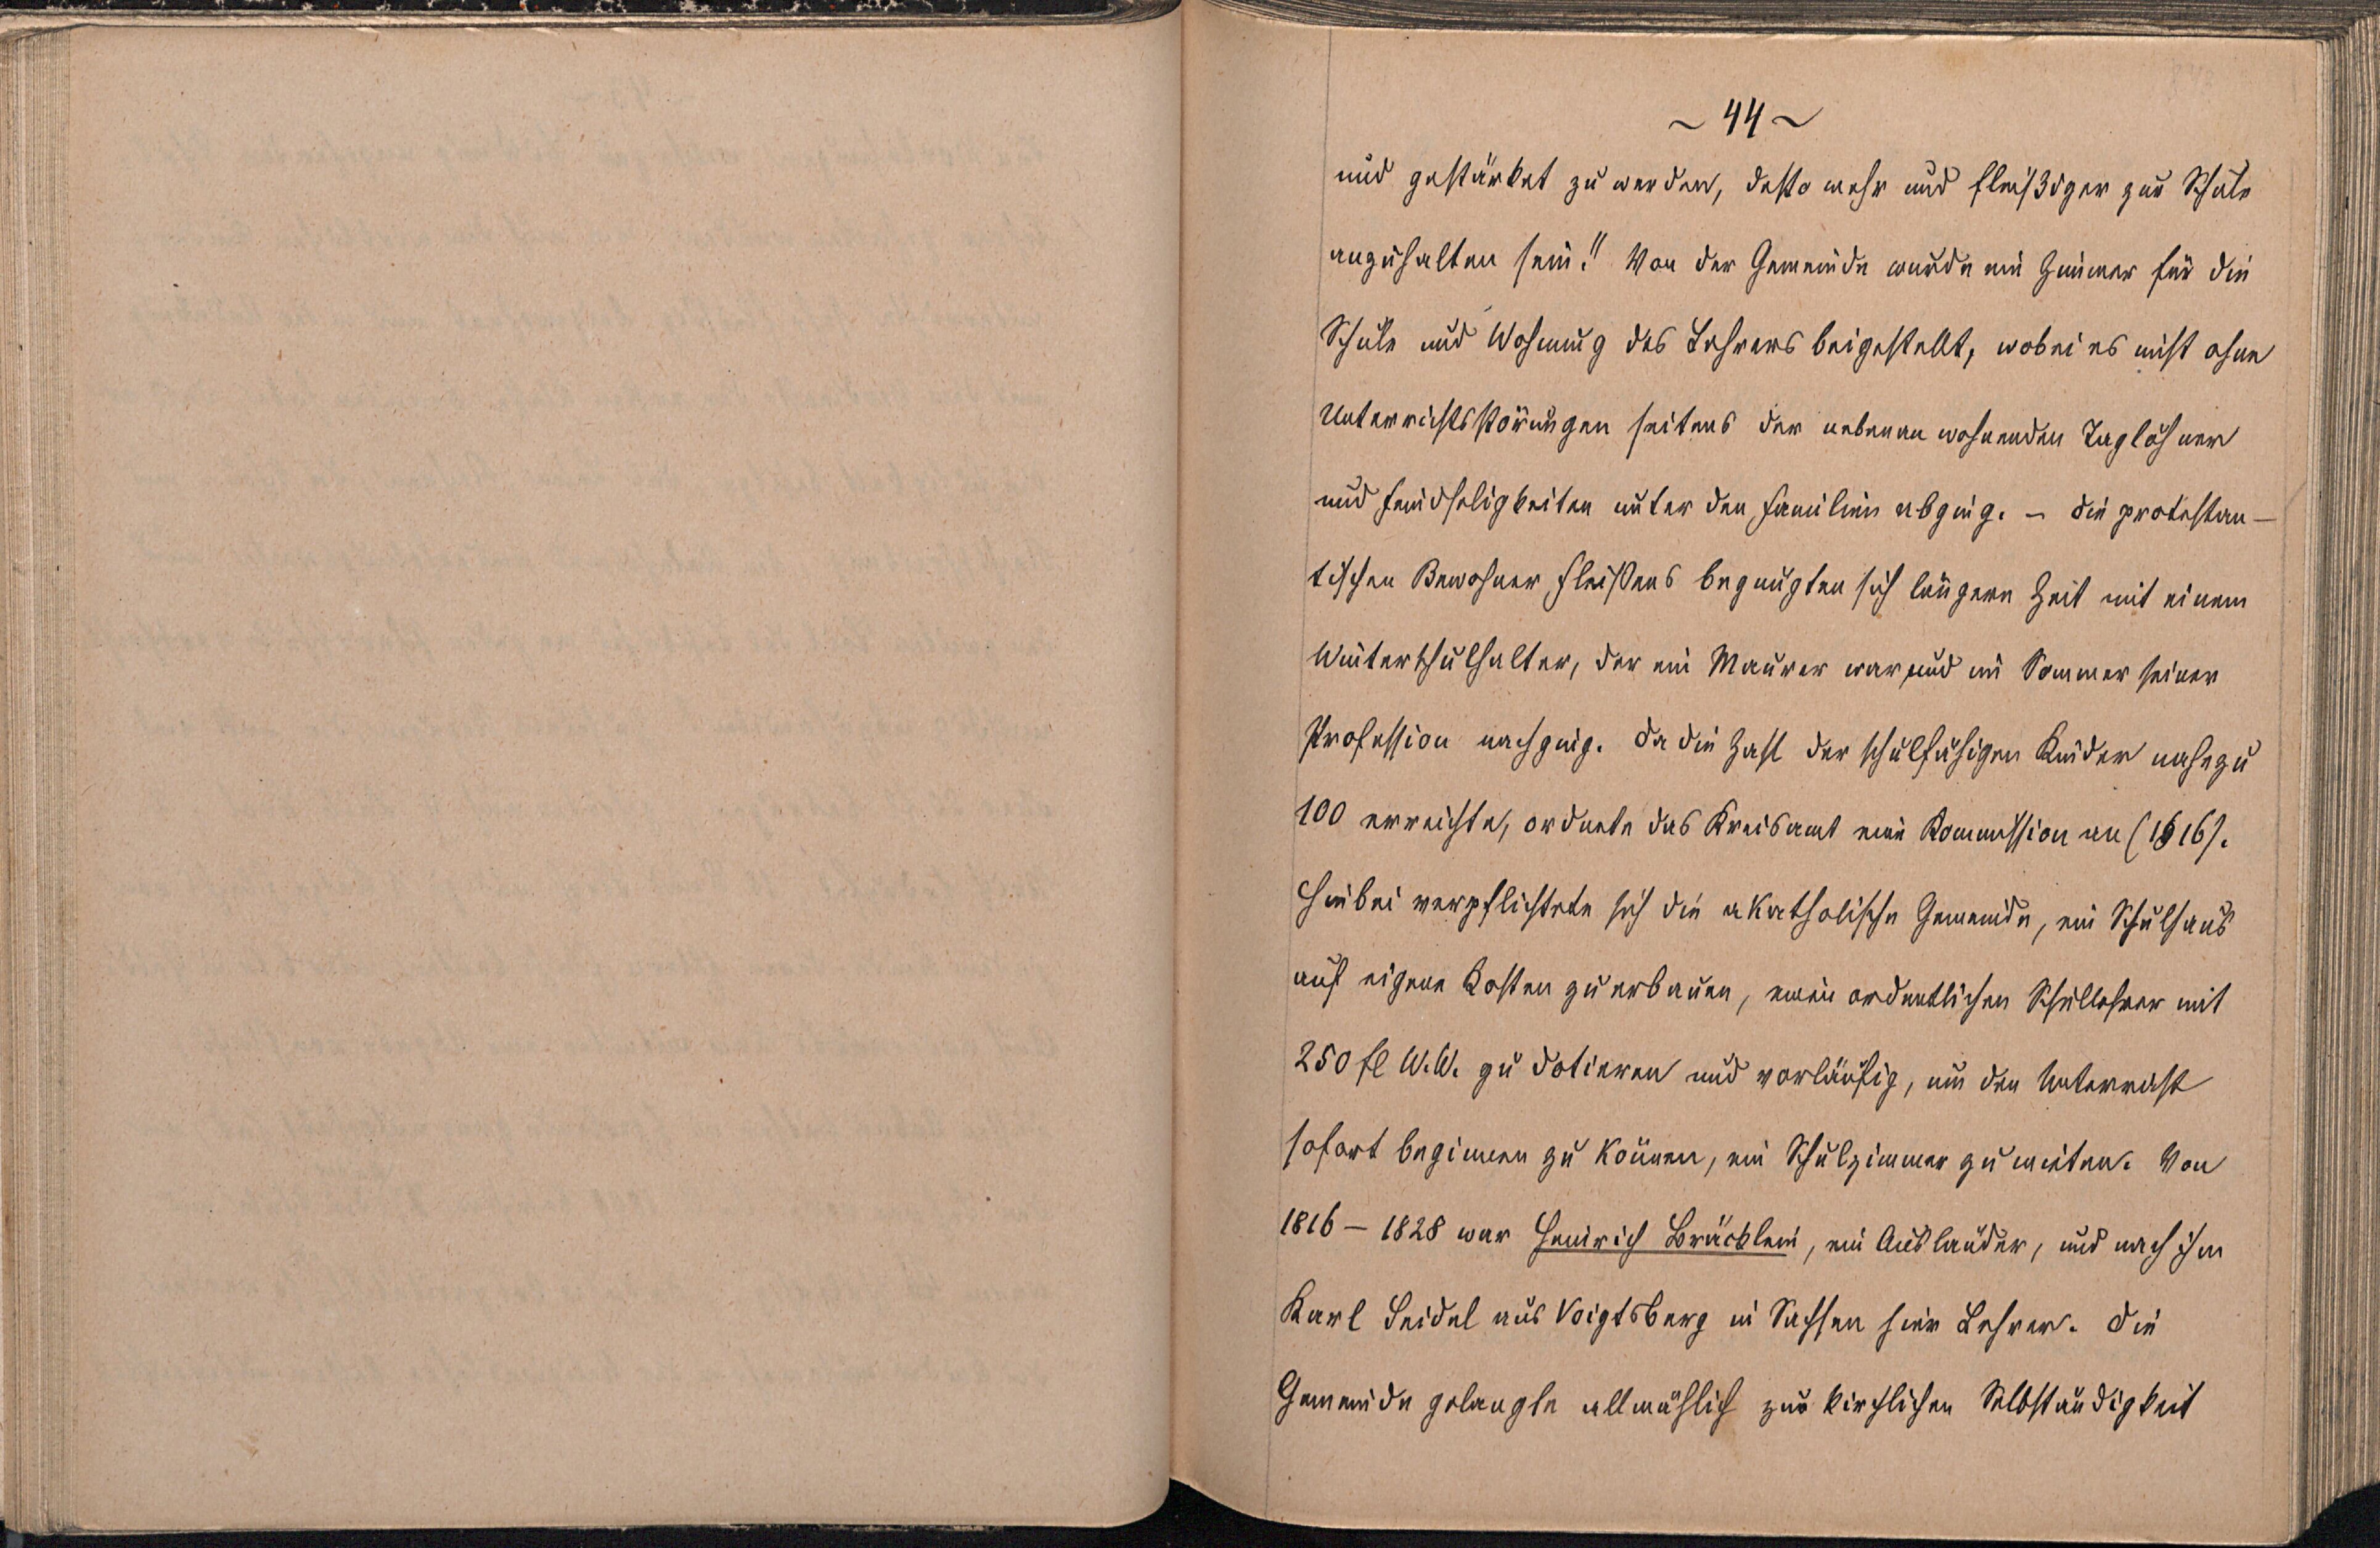 ~ 44 ~
und gestärket zu werden, desto mehr und fleißiger zur Schule
anzuhalten sein." Von der Gemeinde wurde ein Zimmer für die
Schule und Wohnung des Lehrers beigestellt, wobei es nicht ohne
Unterrichtsstörungen seitens der nebenan wohnenden Taglöhner
und Feindseligkeiten unter den Familien abging. – Die protestan–
tischen Bewohner Fleißens begnügten sich längere Zeit mit einem
Winterschulhalter, der ein Maurer war und im Sommer seiner
Profession nachging. Da die Zahl der schulfähigen Kinder nahezu
100 erreichte, ordnete das Kreisamt eine Kommission an (1816).
Hiebei verpflichtete sich die akatholische Gemeinde, ein Schulhaus
auf eigene Kosten zu erbauen, einen ordentlichen Schullehrer mit
250 fl W.W. zu dotieren und vorläufig, um den Unterricht
sofort beginnen zu können, ein Schulzimmer zu mieten. Von
1816 – 1828 war Heinrich Bräcklein, ein Ausländer, und nach ihm
Karl Seidel aus Voigtsberg in Sachsen hier Lehrer. Die
Gemeinde gelangte allmählich zur kirchlichen Selbständigkeit